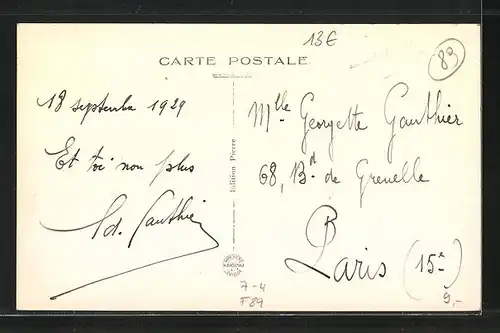 13€
83
CARTE POSTALE
18 septembre 1929
Et toi non plus
Ad. Gauthier
Edition Pierre
Mlle Georgette Gauthier
68, Bd de Grenelle
Paris (15e)
9,-
7-4
F89